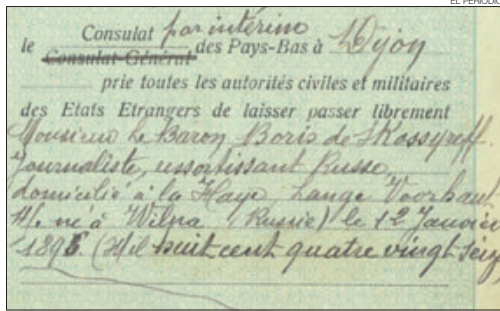 EL PERIÓDIC
Consulat par intérim
le Consulat-Général des Pays-Bas à Dijon
prie toutes les autorités civiles et militaires
des Etats Etrangers de laisser passer librement
Monsieur le Baron Boris de Skossyreff.
Journaliste, ressortissant Russe,
domicilié à la Haye Lange Voorhout
né à Wilna (Russie) le 12 Janvier
1896. (Mil huit cent quatre vingt seize